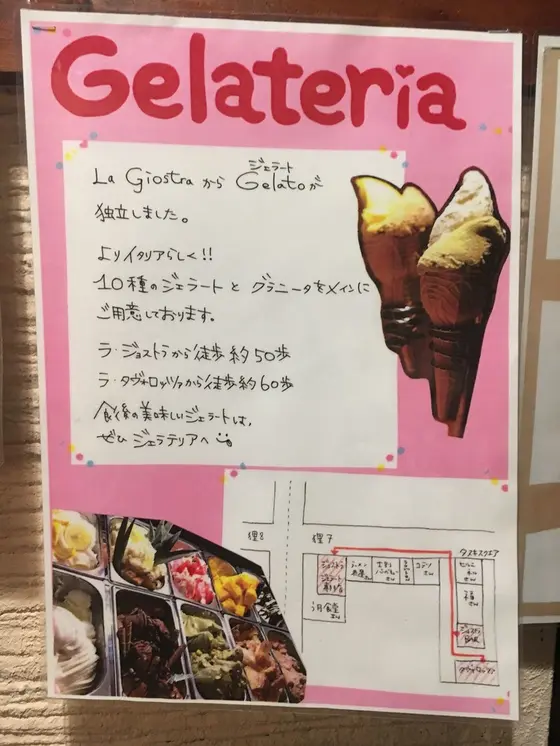 Gelateria
La Giostra から Gelato が
ジェラート
独立しました。
よりイタリアらしく!!
10種のジェラートと グラニータをメインに
ご用意しております。
ラ・ジョストラから徒歩約50歩
ラ・タヴォロッツァから徒歩約60歩
食後の美味しいジェラートは、
ぜひ ジェラテリアへ
狸8
狸7
タヌキスクエア
ジョストラ
ラーメン
コテツ
さん
ジョストラ
BAR